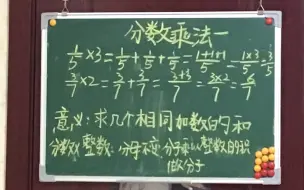 分数乘法一
1/5×3=1/5+1/5+1/5=1+1+1/5=1×3/5=3/5
3/7×2=3/7+3/7=3+3/7=3×2/7=6/7
意义:求几个相同加数的和
分数×整数:分母不变,分子乘以整数的积
做分子